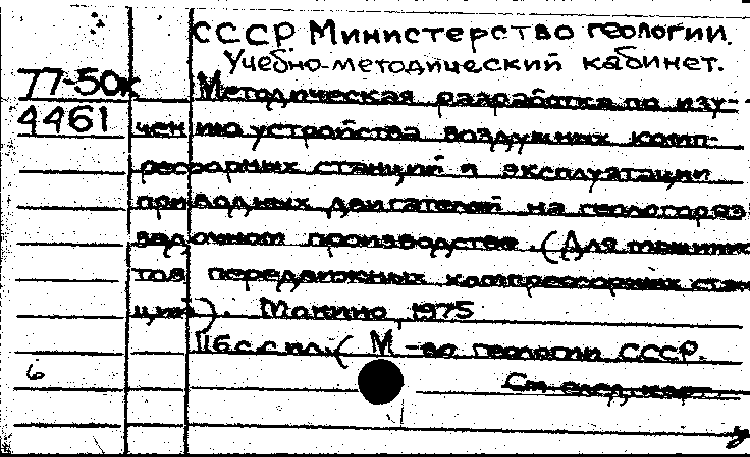 СССР. Министерство геологии.
Учебно-методический кабинет.
77-50к Методическая разработка по изу-
4461 чению устройства воздушных комп-
рессорных станций и эксплуатации
приводных двигателей на геологораз-
ведочном производстве. (Для машинис-
тов передвижных компрессорных стан-
ций). Макино, 1975
116 с. с ил. (М-во геологии СССР.
См. след. карт.
6